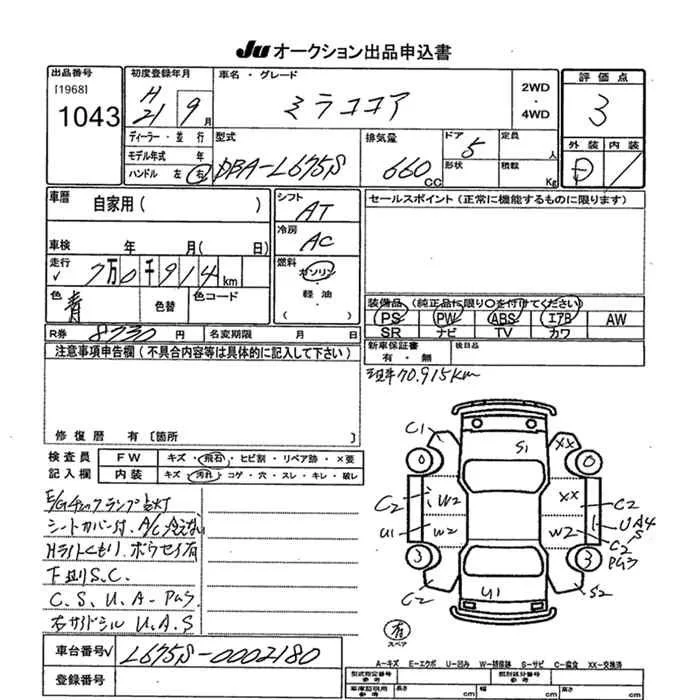 JU オークション出品申込書
出品番号
[1968]
1043
初度登録年月
H21 9月
車名・グレード
ミラココア
2WD
・
4WD
評価点
3
外装 内装
ディーラー・並行
モデル年式 年
ハンドル 左 右
型式
DBA-L675S
排気量
660cc
ドア
5
形状
定員
人
積載
Kg
車歴
自家用( )
車検 年 月( 日)
走行
√ 7万0千914km
色
青
色替
色コード
シフト
AT
冷房
AC
燃料
ガソリン
・
軽油
( )
セールスポイント(正常に機能するものに限ります)
装備品(純正品に限り○を付けてください)
PS PW ABS エアB AW
SR ナビ TV カワ
R券 8730円
名変期限 月 日
新車保証書
有・無
後日品
注意事項申告欄(不具合内容等は具体的に記入して下さい)
70.915km
修復歴 有〔箇所 〕
検査員
記入欄
FW キズ・飛石・ヒビ割・リペア跡・×要
内装 キズ・汚れ・コゲ・穴・スレ・キレ・破レ
E/Gチェックランプ点灯
シートカバー付、A/C冷えない
Hライトくもり、ボウセイ有
下廻りS.C.
C.S.U.A-Pas.
右サイドシルU.A.S
C1 S1 XX
0 0
C2 W2 XX C2
U1 W2 W2 C2
UA4
S
3 3 Pg3
C2 U1 S2
有
スペア
車台番号√ L675S-0002180
登録番号
A-キズ E-エクボ U-凹み W-補修跡 S-サビ C-腐食 XX-交換済
型式指定番号
参考
類別区分番号
参考
車庫証明用
参考
長さ cm 幅 cm 高さ cm